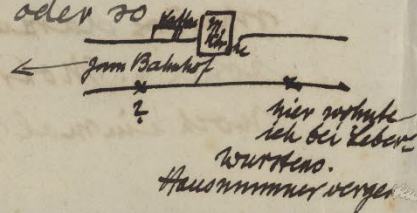 oder so
Kaffee
Kirche
zum Bahnhof
?
hier wohnte
ich bei Leber-
wurstens.
Hausnummer verges